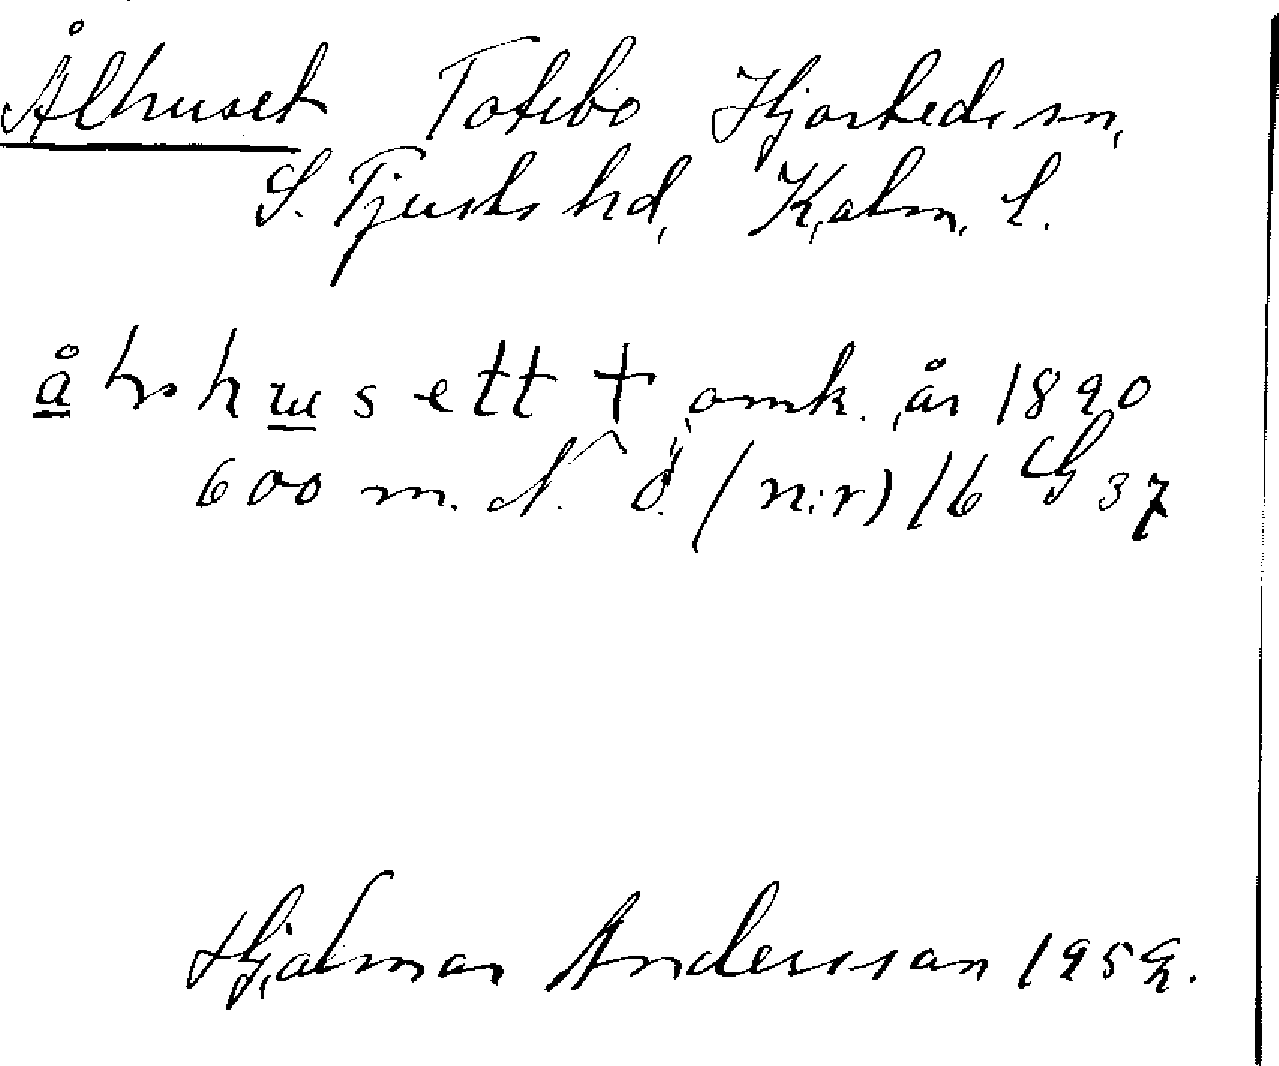 Ålhuset Totebo Hjorteds sn,
S. Tjusts hd, Kalm. l.
husett † omk. år 1890
600 m. N. Ö. (n:r) 16 G 37
Hjalmar Andersson 1959.